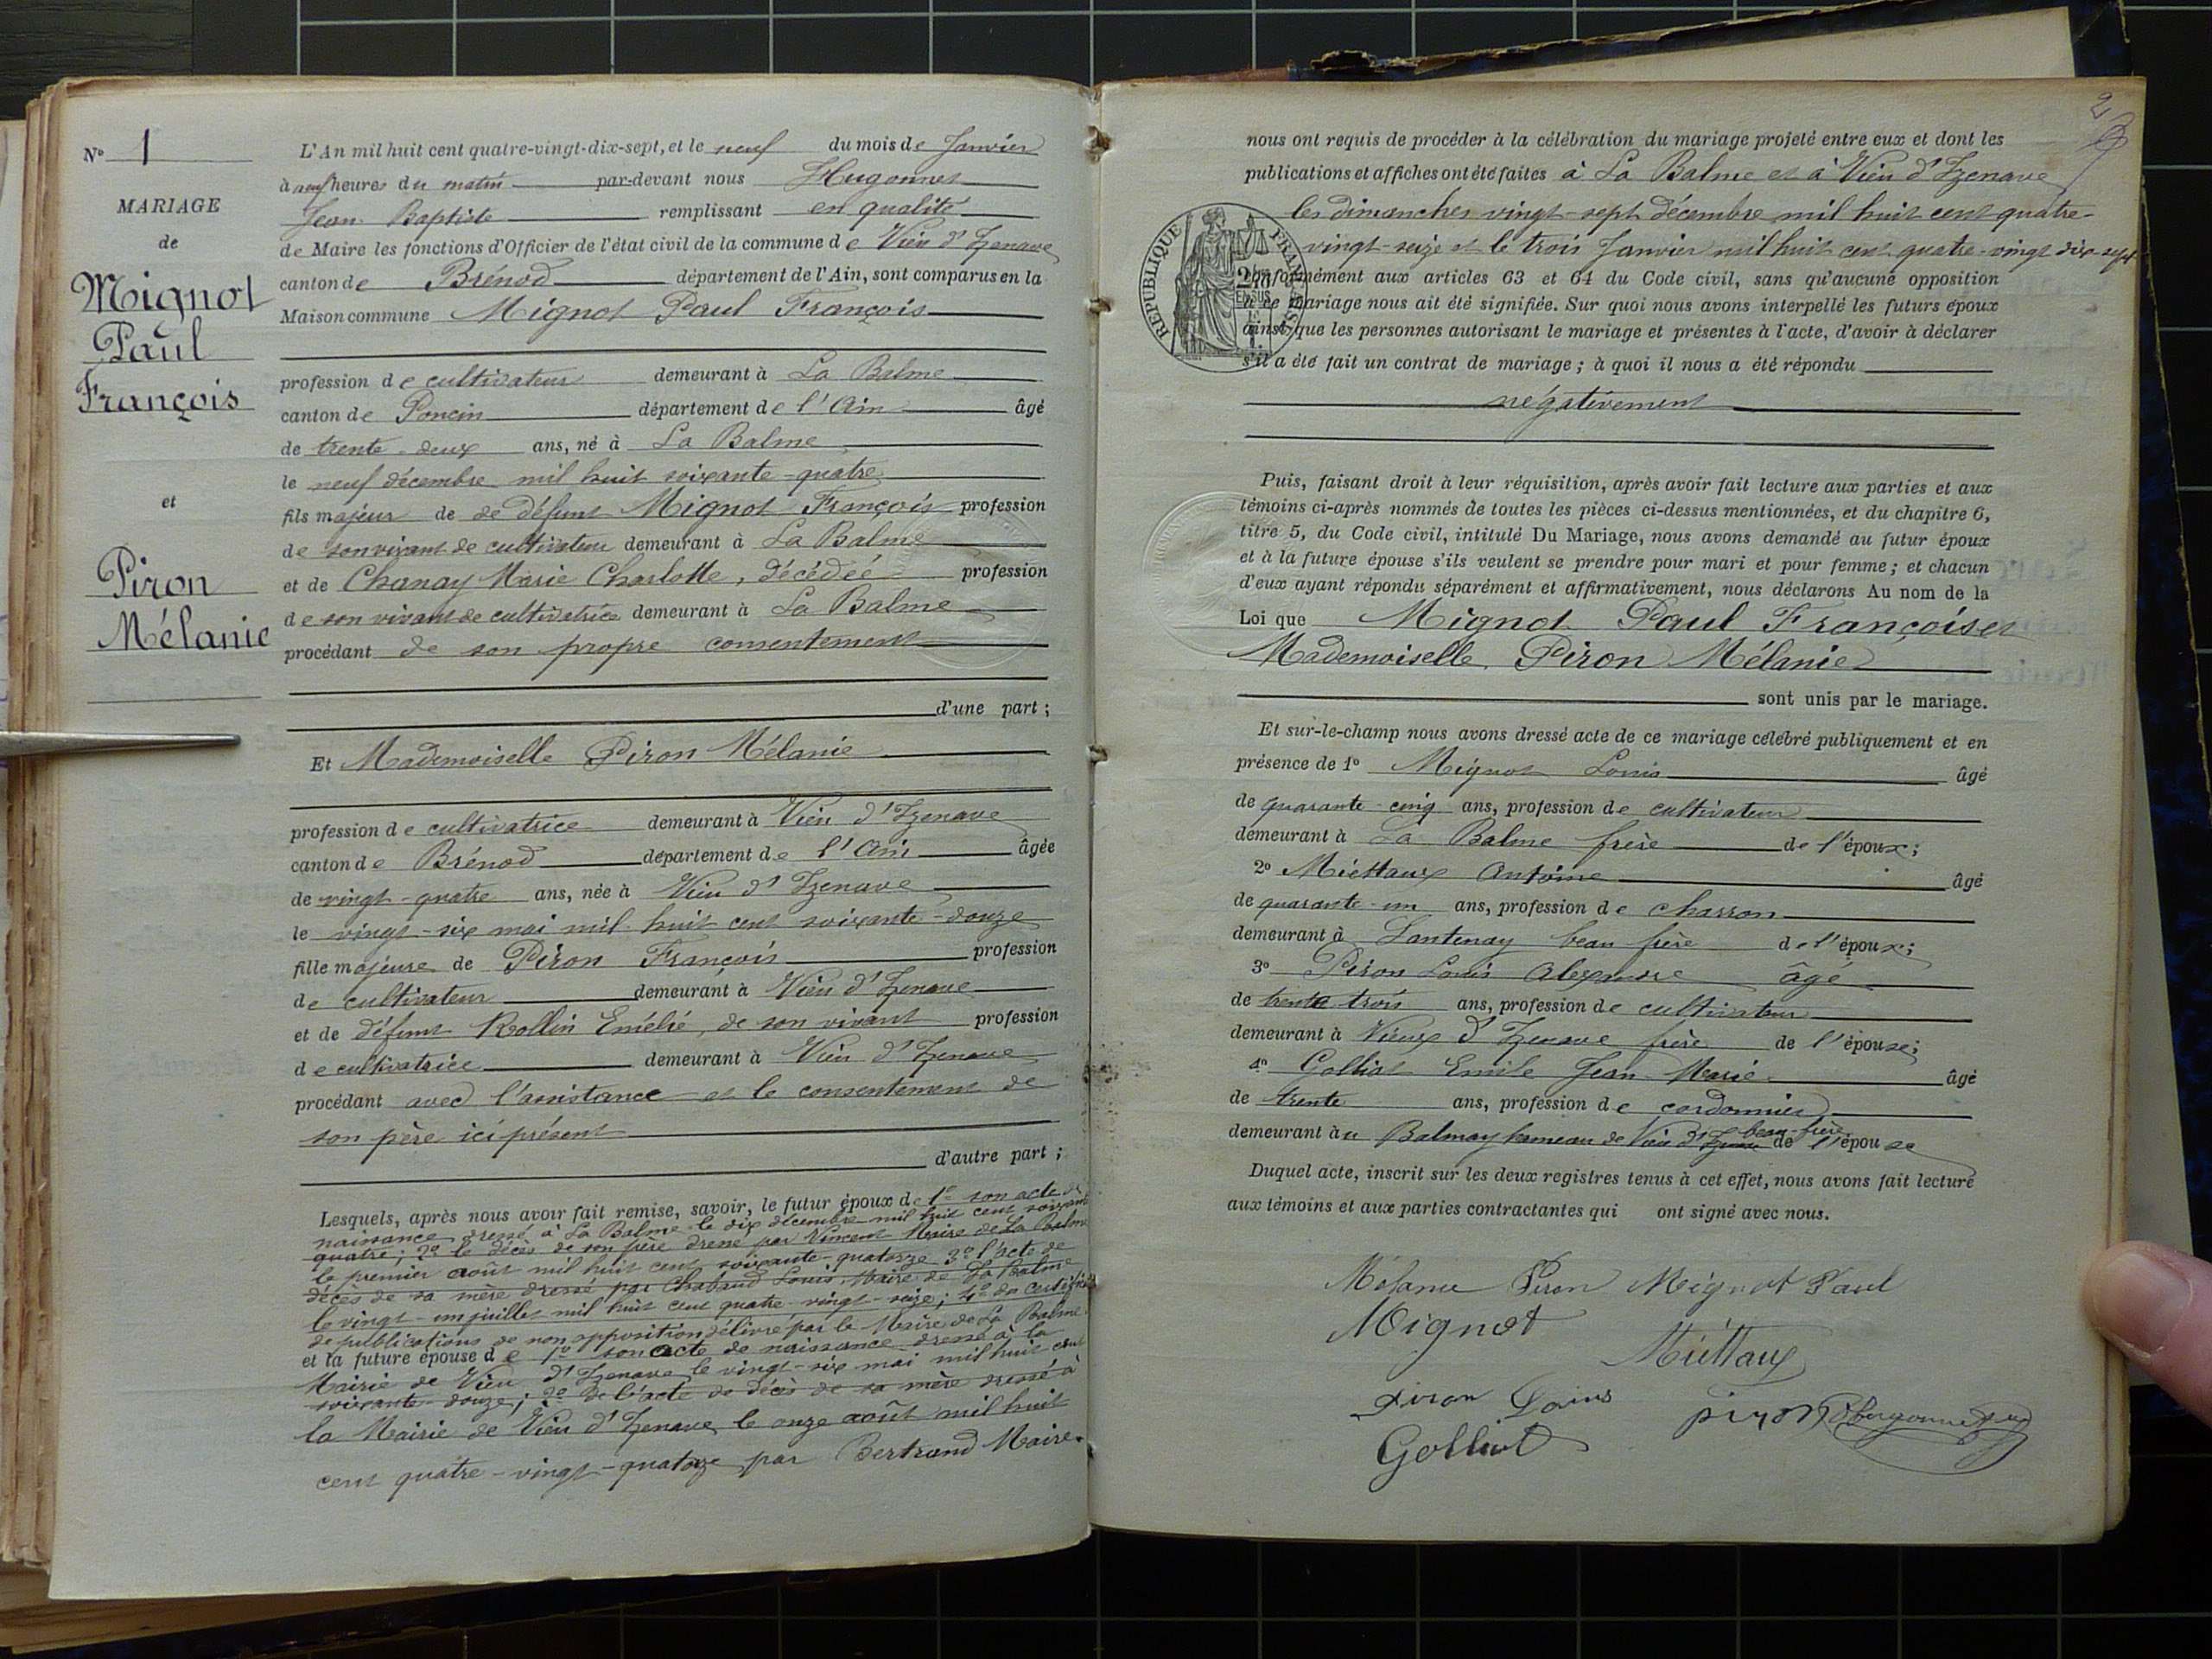 N° 1
MARIAGE
de
Mignot
Paul
François
et
Piron
Mélanie
L'An mil huit cent quatre-vingt-dix-sept, et le neuf du mois de Janvier
à neuf heures du matin par-devant nous Hugonnet
Jean Baptiste remplissant en qualité
de Maire les fonctions d'Officier de l'état civil de la commune de Vieu d'Izenave
canton de Brénod département de l'Ain, sont comparus en la
Maison commune Mignot Paul François
profession de cultivateur demeurant à La Balme
canton de Poncin département de l'Ain âgé
de trente-deux ans, né à La Balme
le neuf décembre mil huit soixante-quatre
fils majeur de de défunt Mignot François profession
de son vivant de cultivateur demeurant à La Balme
et de Chanay Marie Charlotte, décédée profession
de son vivant de cultivatrice demeurant à La Balme
procédant de son propre consentement
d'une part ;
Et Mademoiselle Piron Mélanie
profession de cultivatrice demeurant à Vieu d'Izenave
canton de Brénod département de l'Ain âgée
de vingt-quatre ans, née à Vieu d'Izenave
le vingt-six mai mil huit cent soixante-douze
fille majeure de Piron François profession
de cultivateur demeurant à Vieu d'Izenave
et de défunt Rollin Emélie, de son vivant profession
de cultivatrice demeurant à Vieu d'Izenave
procédant avec l'assistance et le consentement de
son père ici présent
d'autre part ;
Lesquels, après nous avoir fait remise, savoir, le futur époux de 1° son acte de
naissance dressé à La Balme le dix décembre mil huit cent soixante
quatre ; 2° le décès de son père dressé par Vincent Maire de La Balme
le premier août mil huit cent soixante-quatorze 3° l'acte de
décès de sa mère dressé par Chabaud Louis, Maire de La Balme
le vingt-un juillet mil huit cent quatre-vingt-seize ; 4° du certificat
de publications de non opposition délivré par le Maire de La Balme
et la future épouse de 1° son acte de naissance dressé à la
Mairie de Vieu d'Izenave le vingt-six mai mil huit cent
soixante-douze ; 2° de l'acte de décès de sa mère dressé à
la Mairie de Vieu d'Izenave le onze août mil huit
cent quatre-vingt-quatorze par Bertrand Maire.
2
nous ont requis de procéder à la célébration du mariage projeté entre eux et dont les
publications et affiches ont été faites à La Balme et à Vieu d'Izenave
les dimanches vingt-sept décembre mil huit cent quatre-
vingt-seize et le trois Janvier mil huit cent quatre-vingt dix-sept
conformément aux articles 63 et 64 du Code civil, sans qu'aucune opposition
à ce mariage nous ait été signifiée. Sur quoi nous avons interpellé les futurs époux
ainsi que les personnes autorisant le mariage et présentes à l'acte, d'avoir à déclarer
s'il a été fait un contrat de mariage ; à quoi il nous a été répondu
négativement
RÉPUBLIQUE FRANÇAISE
Puis, faisant droit à leur réquisition, après avoir fait lecture aux parties et aux
témoins ci-après nommés de toutes les pièces ci-dessus mentionnées, et du chapitre 6,
titre 5, du Code civil, intitulé Du Mariage, nous avons demandé au futur époux
et à la future épouse s'ils veulent se prendre pour mari et pour femme ; et chacun
d'eux ayant répondu séparément et affirmativement, nous déclarons Au nom de la
Loi que Mignot Paul François et
Mademoiselle Piron Mélanie
sont unis par le mariage.
Et sur-le-champ nous avons dressé acte de ce mariage célébré publiquement et en
présence de 1° Mignot Louis âgé
de quarante-cinq ans, profession de cultivateur
demeurant à La Balme frère de l'époux ;
2° Miéttaux Antoine âgé
de quarante-un ans, profession de charron
demeurant à Lantenay beau frère de l'époux ;
3° Piron Louis Alexandre âgé
de trente trois ans, profession de cultivateur
demeurant à Vieux d'Izenave frère de l'épouse ;
4° Golliot Emile Jean-Marie âgé
de trente ans, profession de cordonnier
demeurant au Balmay hameau de Vieu d'Izenave beau-frère de l'épouse
Duquel acte, inscrit sur les deux registres tenus à cet effet, nous avons fait lecture
aux témoins et aux parties contractantes qui ont signé avec nous.
Mélanie Piron Mignot Paul
Mignot
Miéttaux
Piron Louis
piron
Golliot